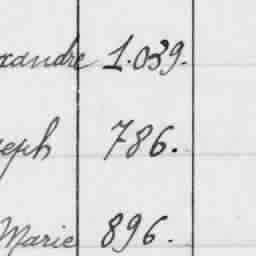 xandre 1.039.
seph 786.
Marie 896.